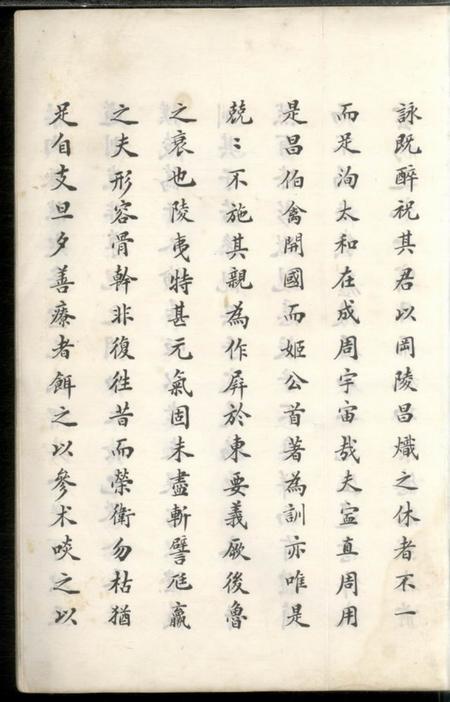 詠既醉祝其君以岡陵昌熾之休者不一
而足洵太和在成周宇宙哉夫寍直周用
是昌伯禽開國而姬公首著為訓亦唯是
兢〻不施其親為作屏於東要義厥後魯
之衰也陵夷特甚元氣固未盡斬譬尫羸
之夫形容骨幹非復徃昔而榮衛勿枯猶
足自支旦夕善療者餌之以參术啖之以